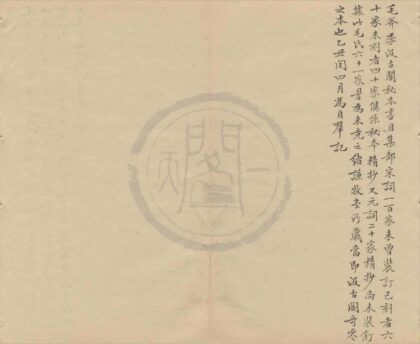 毛斧季汲古閣秘本書目集部宋詞一百家未曾裝訂已刻者六
十家未刻者四十家俱係秘本精抄又元詞二十家精抄尚未裝釘
據此毛氏六十一家書為未竟之緒謙牧堂所藏當即汲古閣奇零
之本也乙丑閏四月馮貞羣記
天一閣